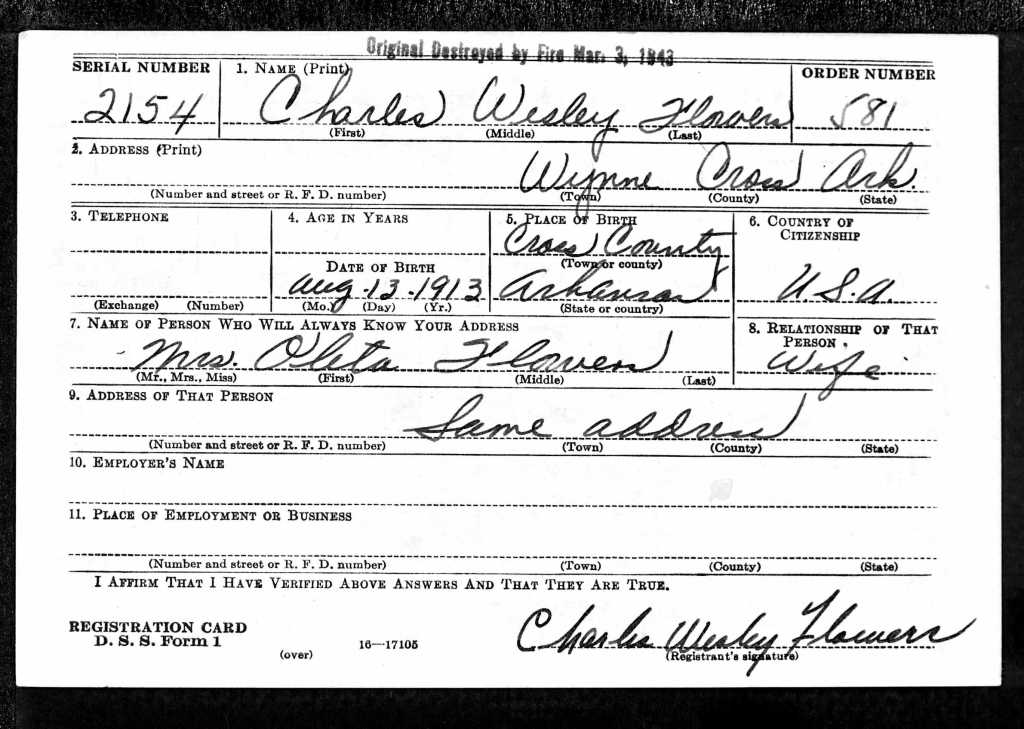 Original Destroyed by Fire Mar. 3, 1943
SERIAL NUMBER 1. NAME (Print) ORDER NUMBER
2154 Charles Wesley Flowers 581
(First) (Middle) (Last)
2. ADDRESS (Print)
Wynne Cross Ark.
(Number and street or R. F. D. number) (Town) (County) (State)
3. TELEPHONE 4. AGE IN YEARS 5. PLACE OF BIRTH 6. COUNTRY OF
CITIZENSHIP
Cross County
(Town or county)
DATE OF BIRTH
Aug. 13. 1913 Arkansas U.S.A.
(Exchange) (Number) (Mo.) (Day) (Yr.) (State or country)
7. NAME OF PERSON WHO WILL ALWAYS KNOW YOUR ADDRESS 8. RELATIONSHIP OF THAT
PERSON
Mrs. Oleta Flowers Wife
(Mr., Mrs., Miss) (First) (Middle) (Last)
9. ADDRESS OF THAT PERSON
Same address
(Number and street or R. F. D. number) (Town) (County) (State)
10. EMPLOYER'S NAME
11. PLACE OF EMPLOYMENT OR BUSINESS
(Number and street or R. F. D. number) (Town) (County) (State)
I AFFIRM THAT I HAVE VERIFIED ABOVE ANSWERS AND THAT THEY ARE TRUE.
REGISTRATION CARD
D. S. S. Form 1 16—17105 Charles Wesley Flowers
(over) (Registrant's signature)